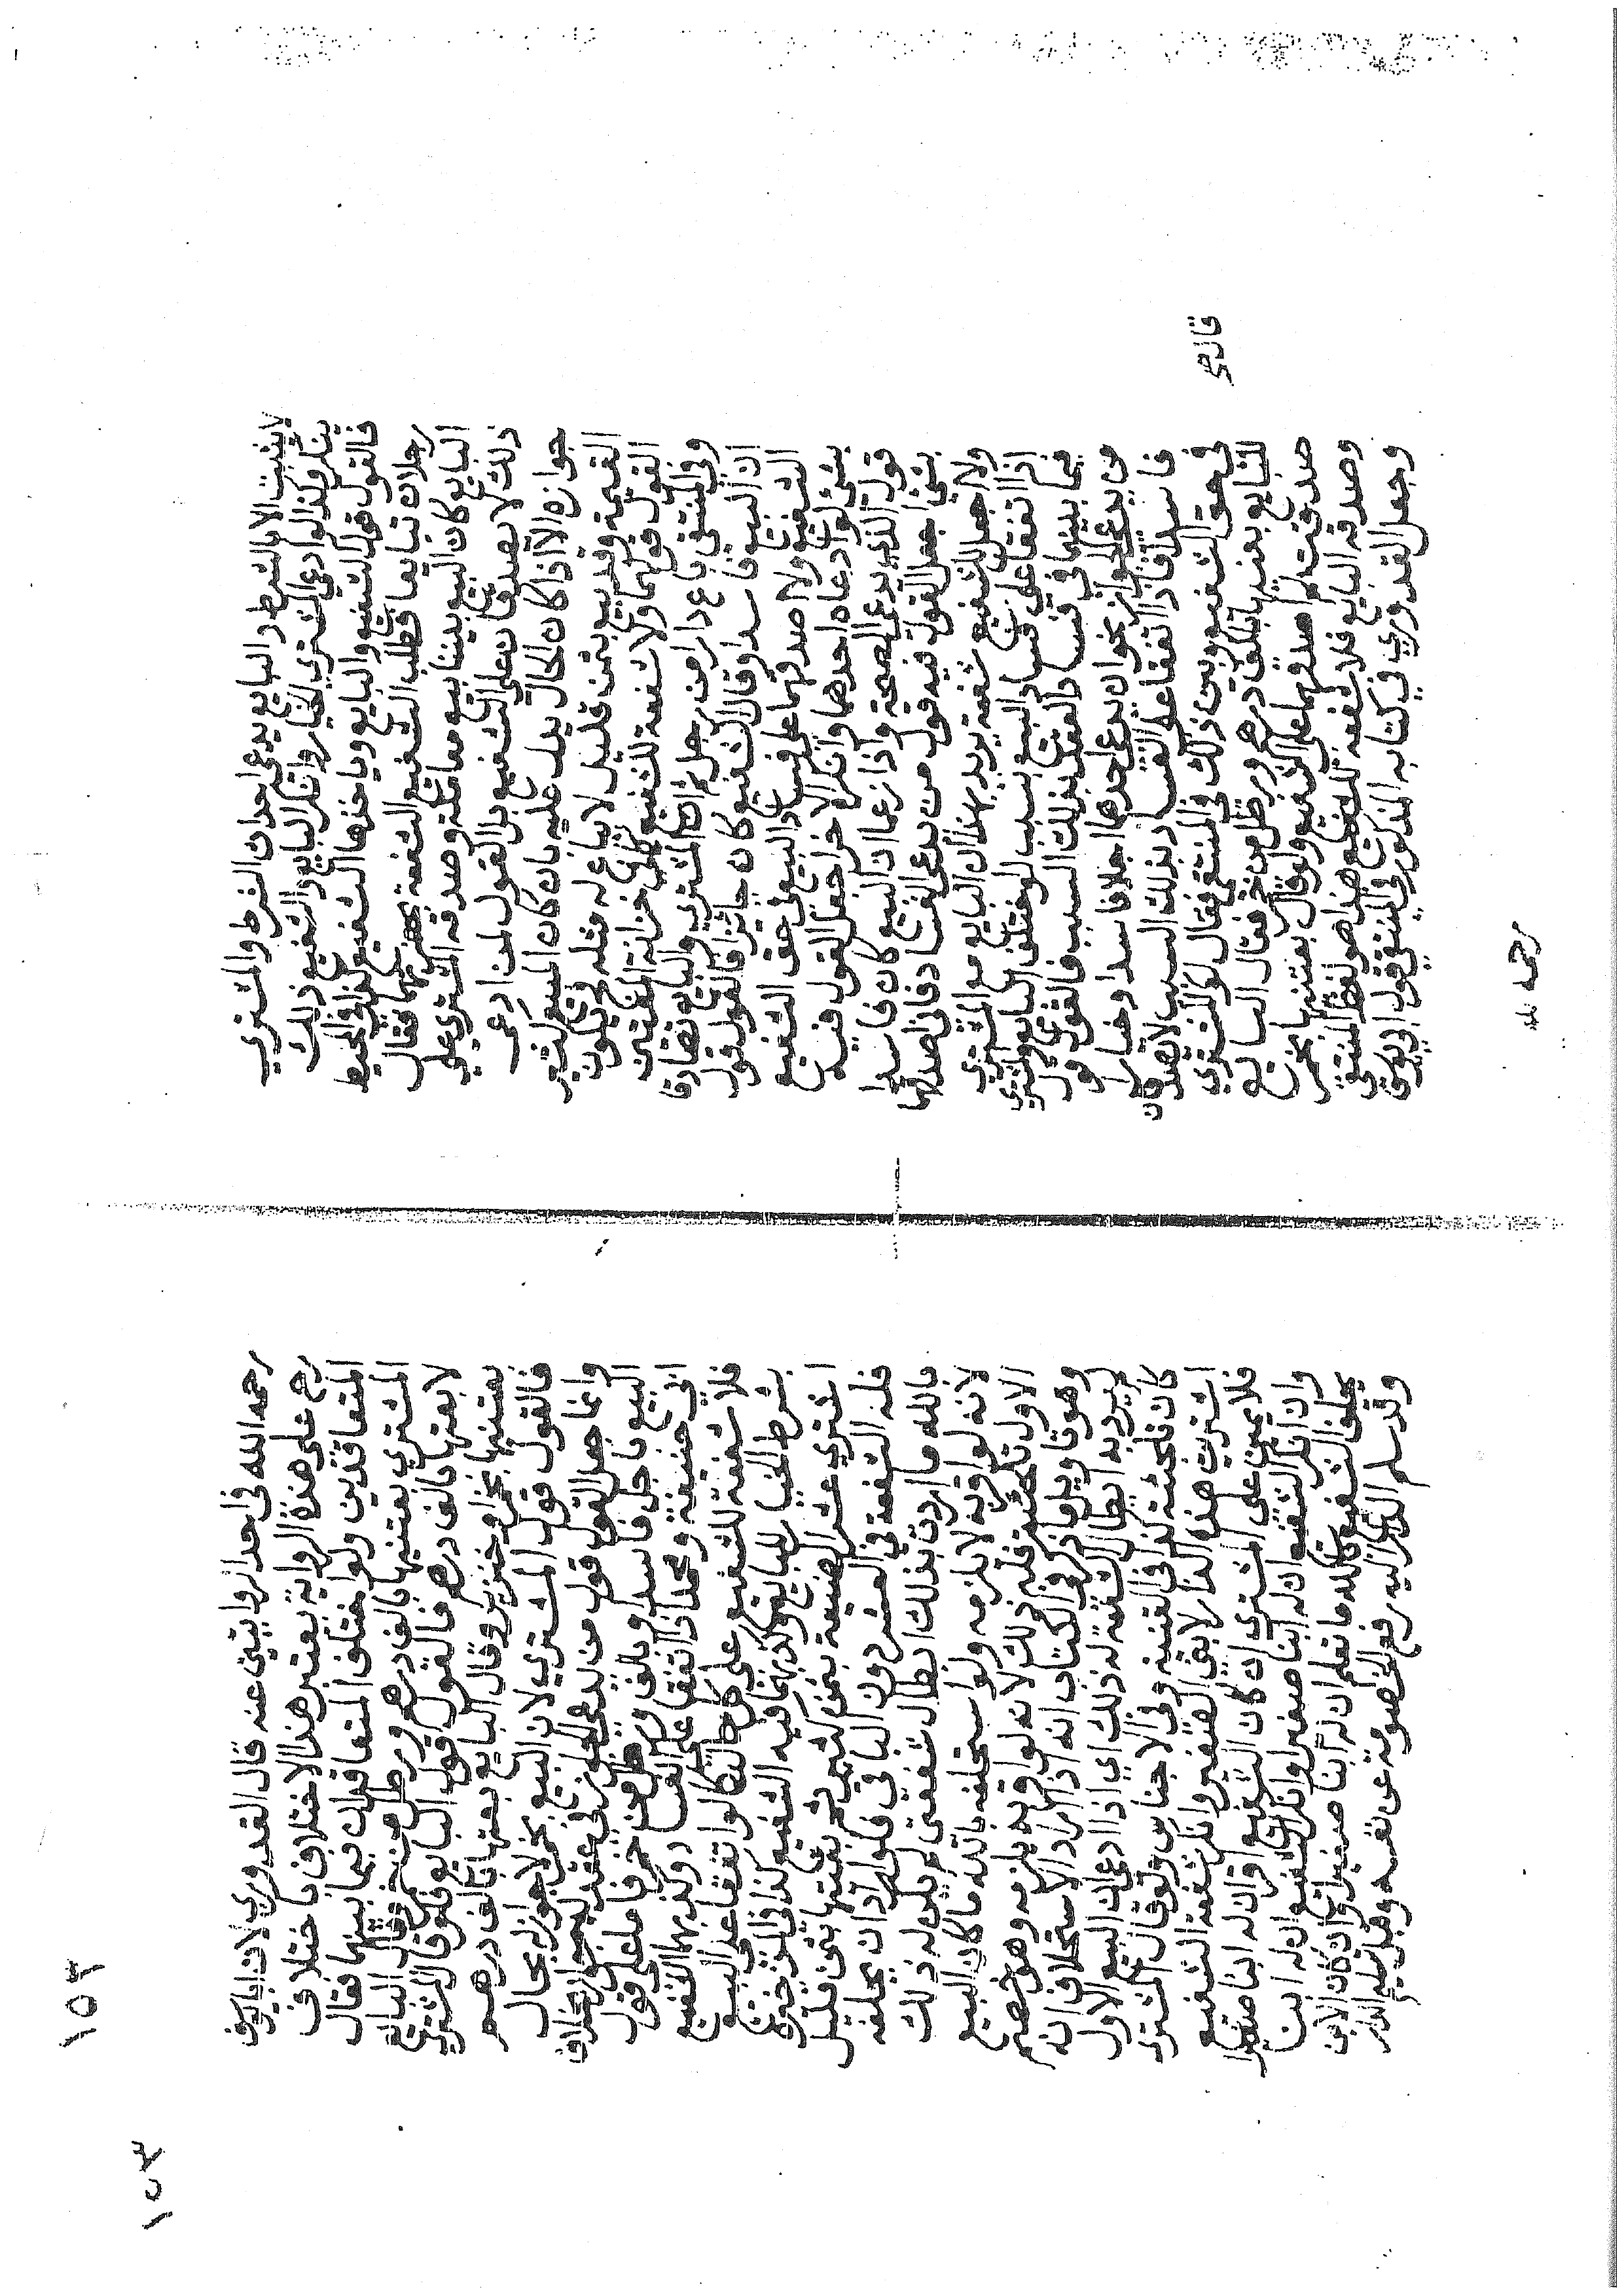 لا يثبت الا بالشرط والبايع يدعي احداث الشرط والمشتري
ينكر وكذا لو ادعى المشتري الخيار وانكر البايع والشفيع ذلك
فالقول قول الشفيع والبايع وياخذها الشفيع كذا في المحيط
رجلان تبايعا فطلب الشفيع الشفعة بحضرتهما فقال
البايع كان البيع بيننا بيع معاملة وصدقه المشتري على
ذلك لا يصدقان على الشفيع بل القول لمن ادعى
جوازه الا اذا كان الحال يدل عليه بان كان المبيع كثير
القيمة وقد بيع بثمن قليل لا يباع به مثله فح يكون
القول قولهما ولا شفعة للشفيع كذا في خزانة المفتين
وفي المنتقى باع دارا من رجل ثم ان المشتري والبايع تصادقا
ان البيع فاسدا وقال الشفيع كان جايزا فالقول قول
الشفيع ولا اصدقهما على فساد البيع في حق الشفيع
بشئ لو ادعاه احدهما وانكر الاخر اجعل القول فيه
قول الذي يدعي الصحة واذا زعما ان البيع كان فاسدا
بشئ اجعل القول فيه قول من يدعي الفساد فاني اصدقهما
ولا اجعل للشفيع شفعة يريد بهذا ان البايع مع المشتري
اذا اتفقا على فساد البيع بسبب لو اختلف البايع والمشتري
فيما بينهما في فساد العقد بذلك السبب فالقول قول
من يدعي الجواز نحو ان يدعي احدهما اجلا فاسدا وخيارا
فاسدا فاذا اتفقا على الفساد بذلك السبب لا يصدقان
في حق الشفيع وبين ذلك في المنتقى فقال لو قال المشتري
للبايع بعتنيها بالف درهم ورطل من خمر فقال البايع
صدقت لم اصدقهما على الشفيع ولو قال بعتنيها بخمر
وصدقه البايع فلا شفعة للشفيع هذا هو لفظ المنتقى
وجعل القدوري في كتابه المذكور في المنتقى قول ابي يوسف
رحمه الله
١٥٢
رحمه الله في احد الروايتين عنه قال القدوري لان ابا يوسف
رح على هذه الرواية يعتبر هذا الاختلاف باختلاف
المتعاقدين ولو اختلف المتعاقدان فيما بينهما فقال
المشتري بعتنيها بالف درهم ورطل من خمر وقال البايع
لا بعتها بالف درهم فالقول قول البايع فلو قال المشتري
بعتنيها بخمر او خنزير وقال البايع بعتها بالف درهم
فالقول قول المشتري لان البيع بخمر لا جواز له بحال
وانما جعل القول قول من يدعي الجواز في عقد له جواز بخلاف
البيع باجل فاسد او بالف ورطل من خمر فاما على قول
ابي حنيفة ومحمد اذا اتفقا على الفساد وكذبهما الشفيع
فلا شفعة للشفيع على كل حال كما لو اتفقا على البيع
بشرط الخيار للبايع وكذبهما فيه الشفيع كذا في الذخيرة
اشترى عشر الضيعة بثمن كثير ثم بقيتها بثمن قليل
فله الشفعة في العشر دون الباقي فلو اراد ان يحلفه
بالله ما اردت بذلك ابطال شفعتي لم يكن له ذلك
لانه لو اقر به لا يلزمه ولو استحلفه بالله ما كان البيع
الاول تلجئة فله ذلك لانه لو اقر به يلزمه وهو خصم
وهو تاويل ما ذكر في الكتاب انه اذا اراد الاستحلاف انه
لم يرد به ابطال الشفعة له ذلك اي اذا ادعى ان البيع الاول
كان تلجئة كذا في القنية وفي الاجناس ولو قال المشتري
اشتريت هذه الدار لابني الصغير وانكر شفعة الشفيع
فلا يمين على المشتري ان كان الشفيع اقر ان له ابنا صغيرا
وان انكر الشفيع ان له ابنا صغيرا وانكر الشفيع ان له ابن
يحلف الشفيع بالله ما تعلم ان له ابنا صغيرا وان كان الابن
وقد سلم الدار اليه رفع الخصومة عن نفسه وقبل تسليم الدار
١٥٣